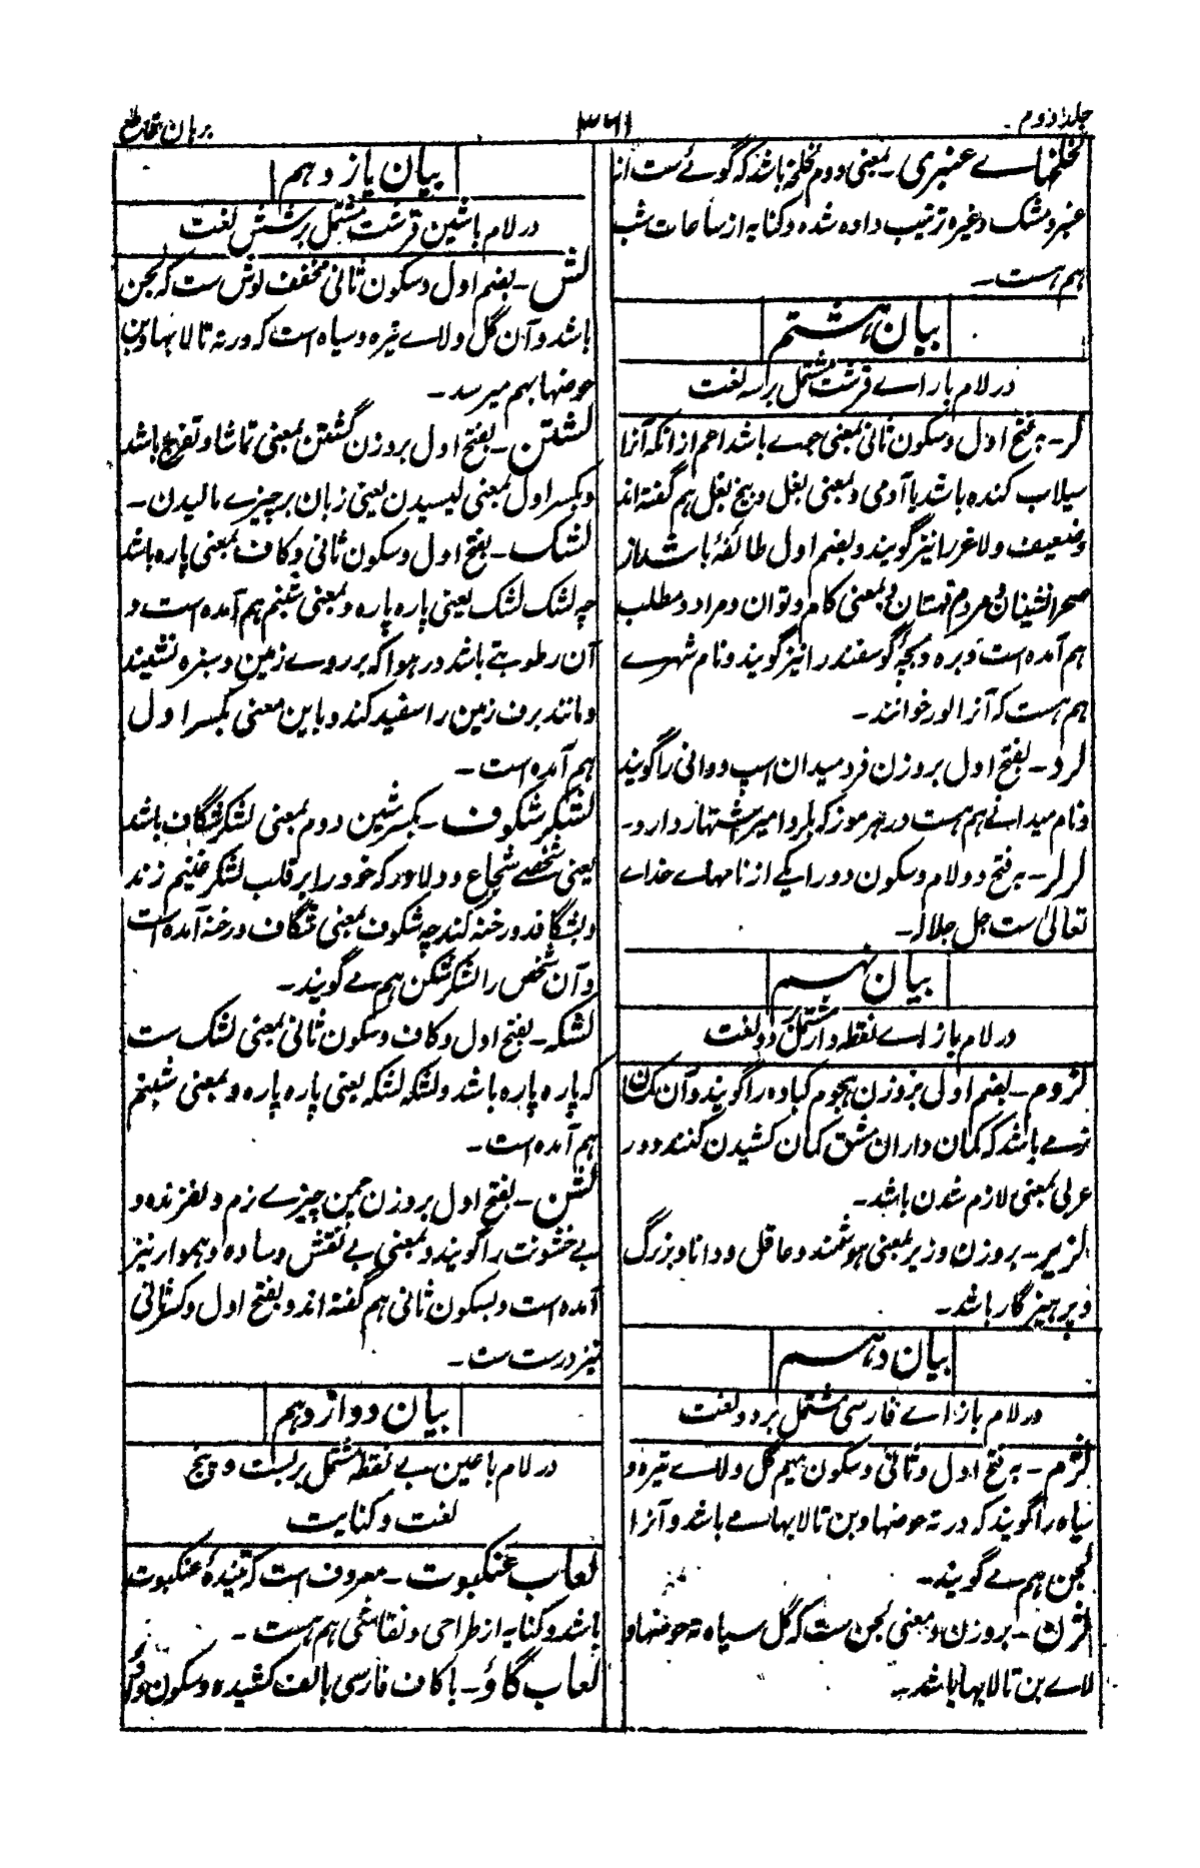 جلد دوم
۳۶۱
برهان قاطع
لخلخهاے عنبری - بمعنی دوم لخلخه باشد که گوئے ست از
عنبر و مشک و غیره ترتیب داده شده و کنایه از ساعات شب
هم هست -
بیان هشتم
در لام با راے قرشت مشتمل بر سه لغت
لر - بفتح اول و سکون ثانی بمعنی جوے باشد اعم از انکه آنرا
سیلاب کنده باشد یا آدمی و بمعنی بغل و بیخ بغل هم گفته اند
و ضعیف و لاغر را نیز گویند و بضم اول طائفهٔ باشند از
صحرا نشینان و مردم قهستان و بمعنی کام و توان و مراد و مطلب
هم آمده است و بره و بچهٔ گوسفند را نیز گویند و نام شهرے
هم هست که آنرا لور خوانند -
لرد - بفتح اول بر وزن فرد میدان اسپ دوانی را گویند
و نام میدانے هم هست در هرموز که بلرد امیر اشتهار دارد -
لرلر - بفتح دو لام و سکون دو را یکے از نامهاے خداے
تعالیٰ ست جل جلاله -
بیان نهم
در لام با زاے نقطه دار مشتمل بر دو لغت
لزوم - بضم اول بر وزن هجوم کباده را گویند و آن کمان
نرمے باشد که کمان داران مشق کمان کشیدن کنند و در
عربی بمعنی لازم شدن باشد -
لزیر - بر وزن وزیر بمعنی هوشمند و عاقل و دانا و بزرگ
و پرهیزگار باشد -
بیان دهم
در لام با زاے فارسی مشتمل بر دو لغت
لژم - بفتح اول و ثانی و سکون میم گل و لاے تیره و
سیاه را گویند که در ته حوضها و بن تالابها مے باشد و آنرا
لجن هم مے گویند -
لژن - بر وزن و معنی لجن ست که گل سیاه ته حوضها و
لاے بن تالابها باشد -
بیان یازدهم
در لام با شین قرشت مشتمل بر شش لغت
لش - بضم اول و سکون ثانی مخفف لوش ست که لجن
باشد و آن گل و لاے تیره و سیاه است که در ته تالابها و بن
حوضها بهم میرسد -
لشتن - بفتح اول بر وزن گشتن بمعنی تماشا و تفرج باشد
و بکسر اول بمعنی لیسیدن یعنی زبان بر چیزے مالیدن -
لشک - بفتح اول و سکون ثانی و کاف بمعنی پاره باشد
چه لشک لشک یعنی پاره پاره و بمعنی شبنم هم آمده است و
آن رطوبتے باشد در هوا که بر روے زمین و سبزه نشیند
و مانند برف زمین را سفید کند و باین معنی بکسر اول
هم آمده است -
لشکر شکوف - بکسر شین دوم بمعنی لشکر شگاف باشد
یعنی شخصے شجاع و دلاور که خود را بر قلب لشکر غنیم زند
و بشگافد و رخنه کند چه شکوف بمعنی شگاف و رخنه آمده است
و آن شخص را لشکر شکن هم مے گویند -
لشکه - بفتح اول و کاف و سکون ثانی بمعنی لشک ست
که پاره پاره باشد و لشکه لشکه یعنی پاره پاره و بمعنی شبنم
هم آمده است -
لشن - بفتح اول بر وزن چمن چیزے نرم و لغزنده و
بے خشونت را گویند و بمعنی بے نقش و ساده و هموار نیز
آمده است و بسکون ثانی هم گفته اند و بفتح اول و کسر ثانی
نیز درست ست -
بیان دوازدهم
در لام با عین بے نقطه مشتمل بر بست و پنج
لغت و کنایت
لعاب عنکبوت - معروف است که تنیدهٔ عنکبوت
باشد و کنایه از طراحی و نقاشی هم هست -
لعاب گاؤ - با کاف فارسی بالف کشیده و سکون واو